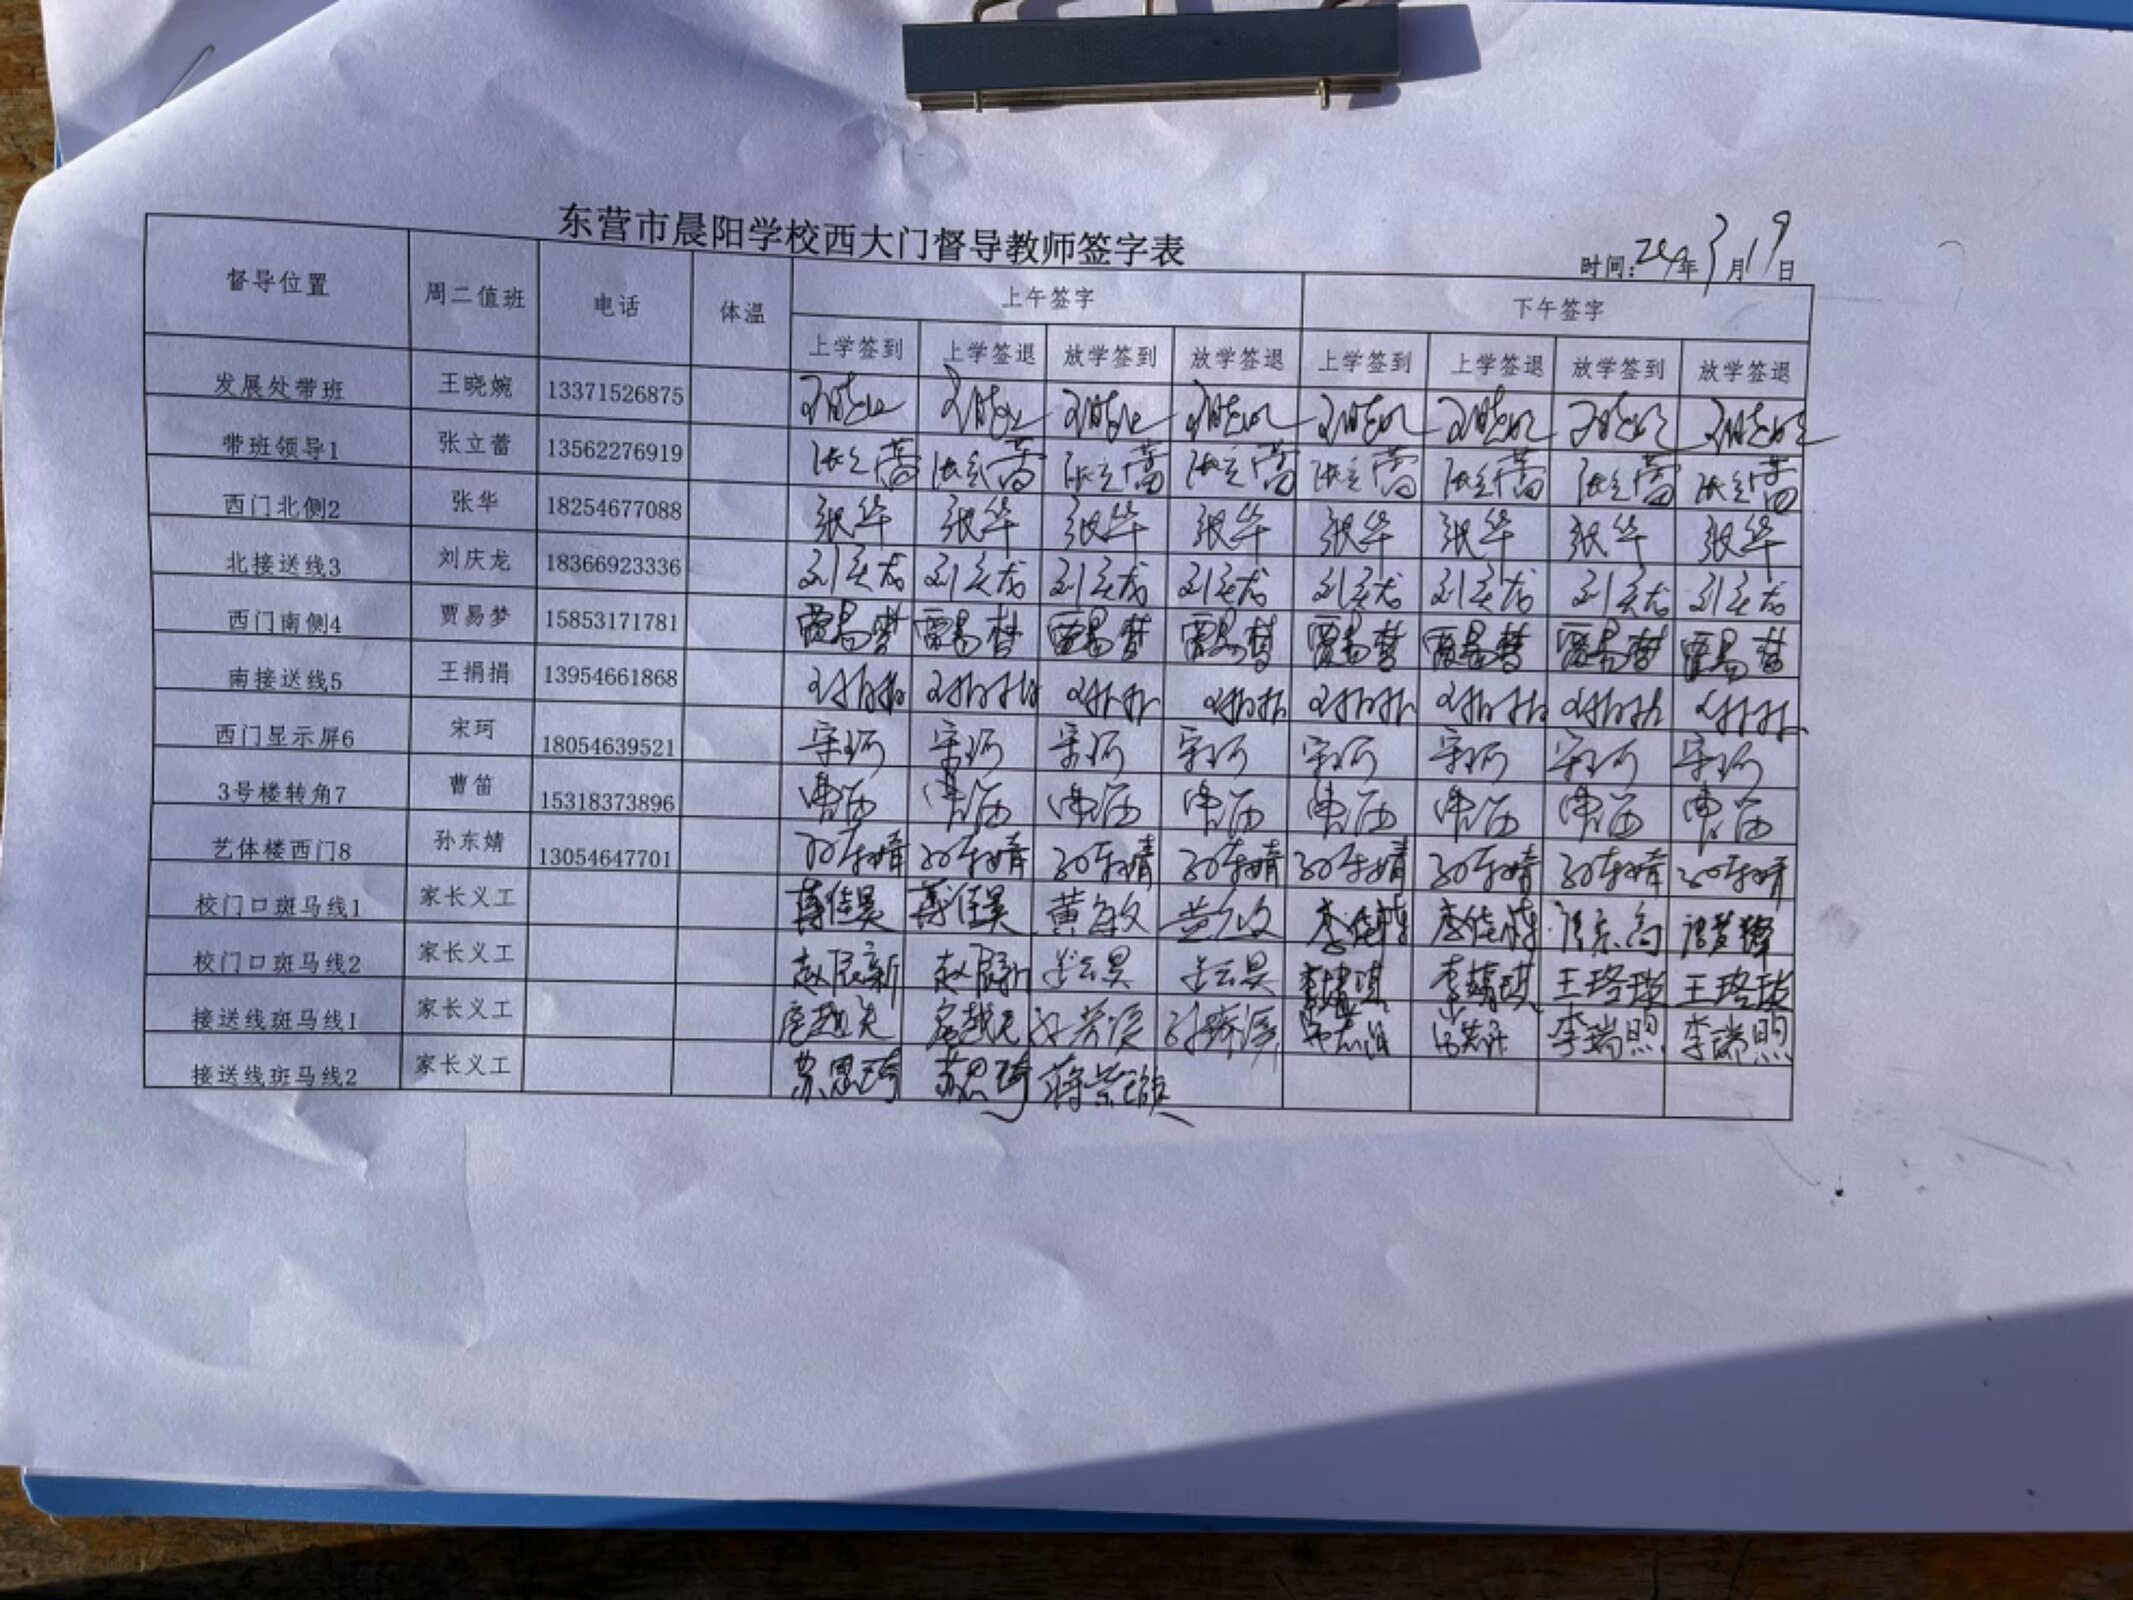 东营市晨阳学校西大门督导教师签字表
时间:24年3月19日
督导位置 周二值班 电话 体温 上午签字 下午签字
上学签到 上学签退 放学签到 放学签退 上学签到 上学签退 放学签到 放学签退
发展处带班 王晓婉 13371526875 王晓婉 王晓婉 王晓婉 王晓婉 王晓婉 王晓婉 王晓婉 王晓婉
带班领导1 张立蕾 13562276919 张立蕾 张立蕾 张立蕾 张立蕾 张立蕾 张立蕾 张立蕾 张立蕾
西门北侧2 张华 18254677088 张华 张华 张华 张华 张华 张华 张华 张华
北接送线3 刘庆龙 18366923336 刘庆龙 刘庆龙 刘庆龙 刘庆龙 刘庆龙 刘庆龙 刘庆龙 刘庆龙
西门南侧4 贾易梦 15853171781 贾易梦 贾易梦 贾易梦 贾易梦 贾易梦 贾易梦 贾易梦 贾易梦
南接送线5 王捐捐 13954661868 王捐捐 王捐捐 王捐捐 王捐捐 王捐捐 王捐捐 王捐捐 王捐捐
西门显示屏6 宋珂 18054639521 宋珂 宋珂 宋珂 宋珂 宋珂 宋珂 宋珂 宋珂
3号楼转角7 曹笛 15318373896 曹笛 曹笛 曹笛 曹笛 曹笛 曹笛 曹笛 曹笛
艺体楼西门8 孙东婧 13054647701 孙东婧 孙东婧 孙东婧 孙东婧 孙东婧 孙东婧 孙东婧 孙东婧
校门口斑马线1 家长义工 黄敏
校门口斑马线2 家长义工 赵辰新 赵辰新 李婧琪 李婧琪 王珞琰 王珞琰
接送线斑马线1 家长义工 李瑞熙 李瑞熙
接送线斑马线2 家长义工 苏思琦 苏思琦 蒋紫璇